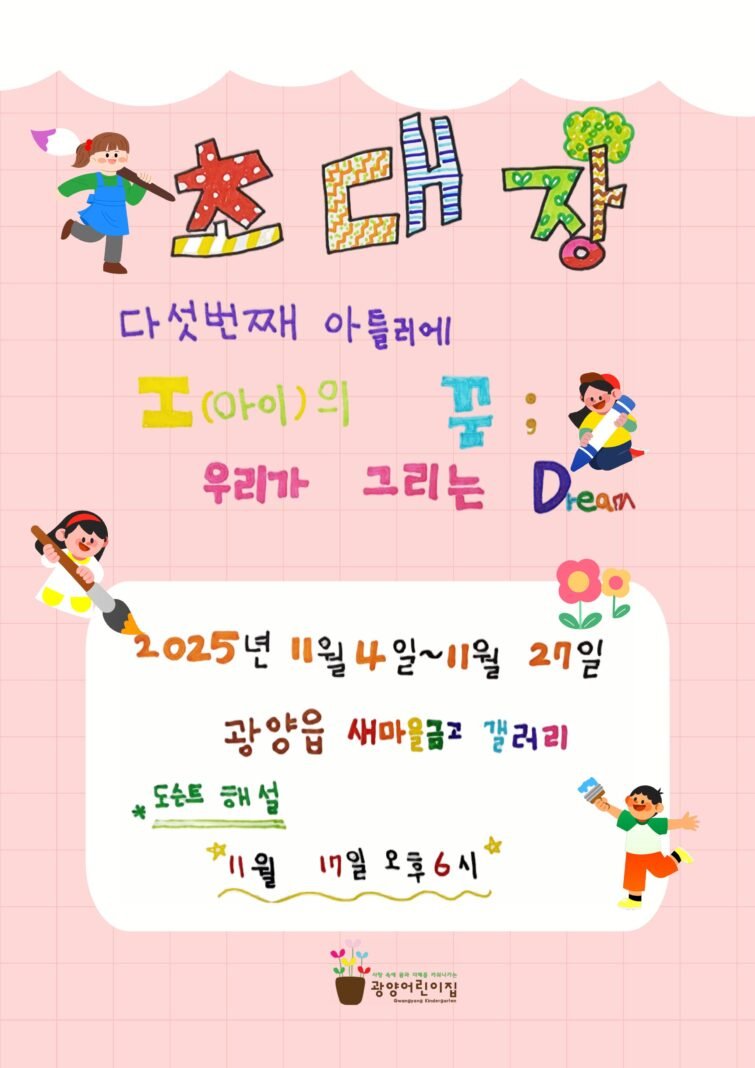 초대장
다섯번째 아틀리에
I(아이)의 꿈;
우리가 그리는 Dream
2025년 11월 4일~11월 27일
광양읍 새마을금고 갤러리
* 도슨트 해설
11월 17일 오후 6시
사랑 속에 꿈과 지혜를 키워나가는
광양어린이집
Gwangyang Kindergarten